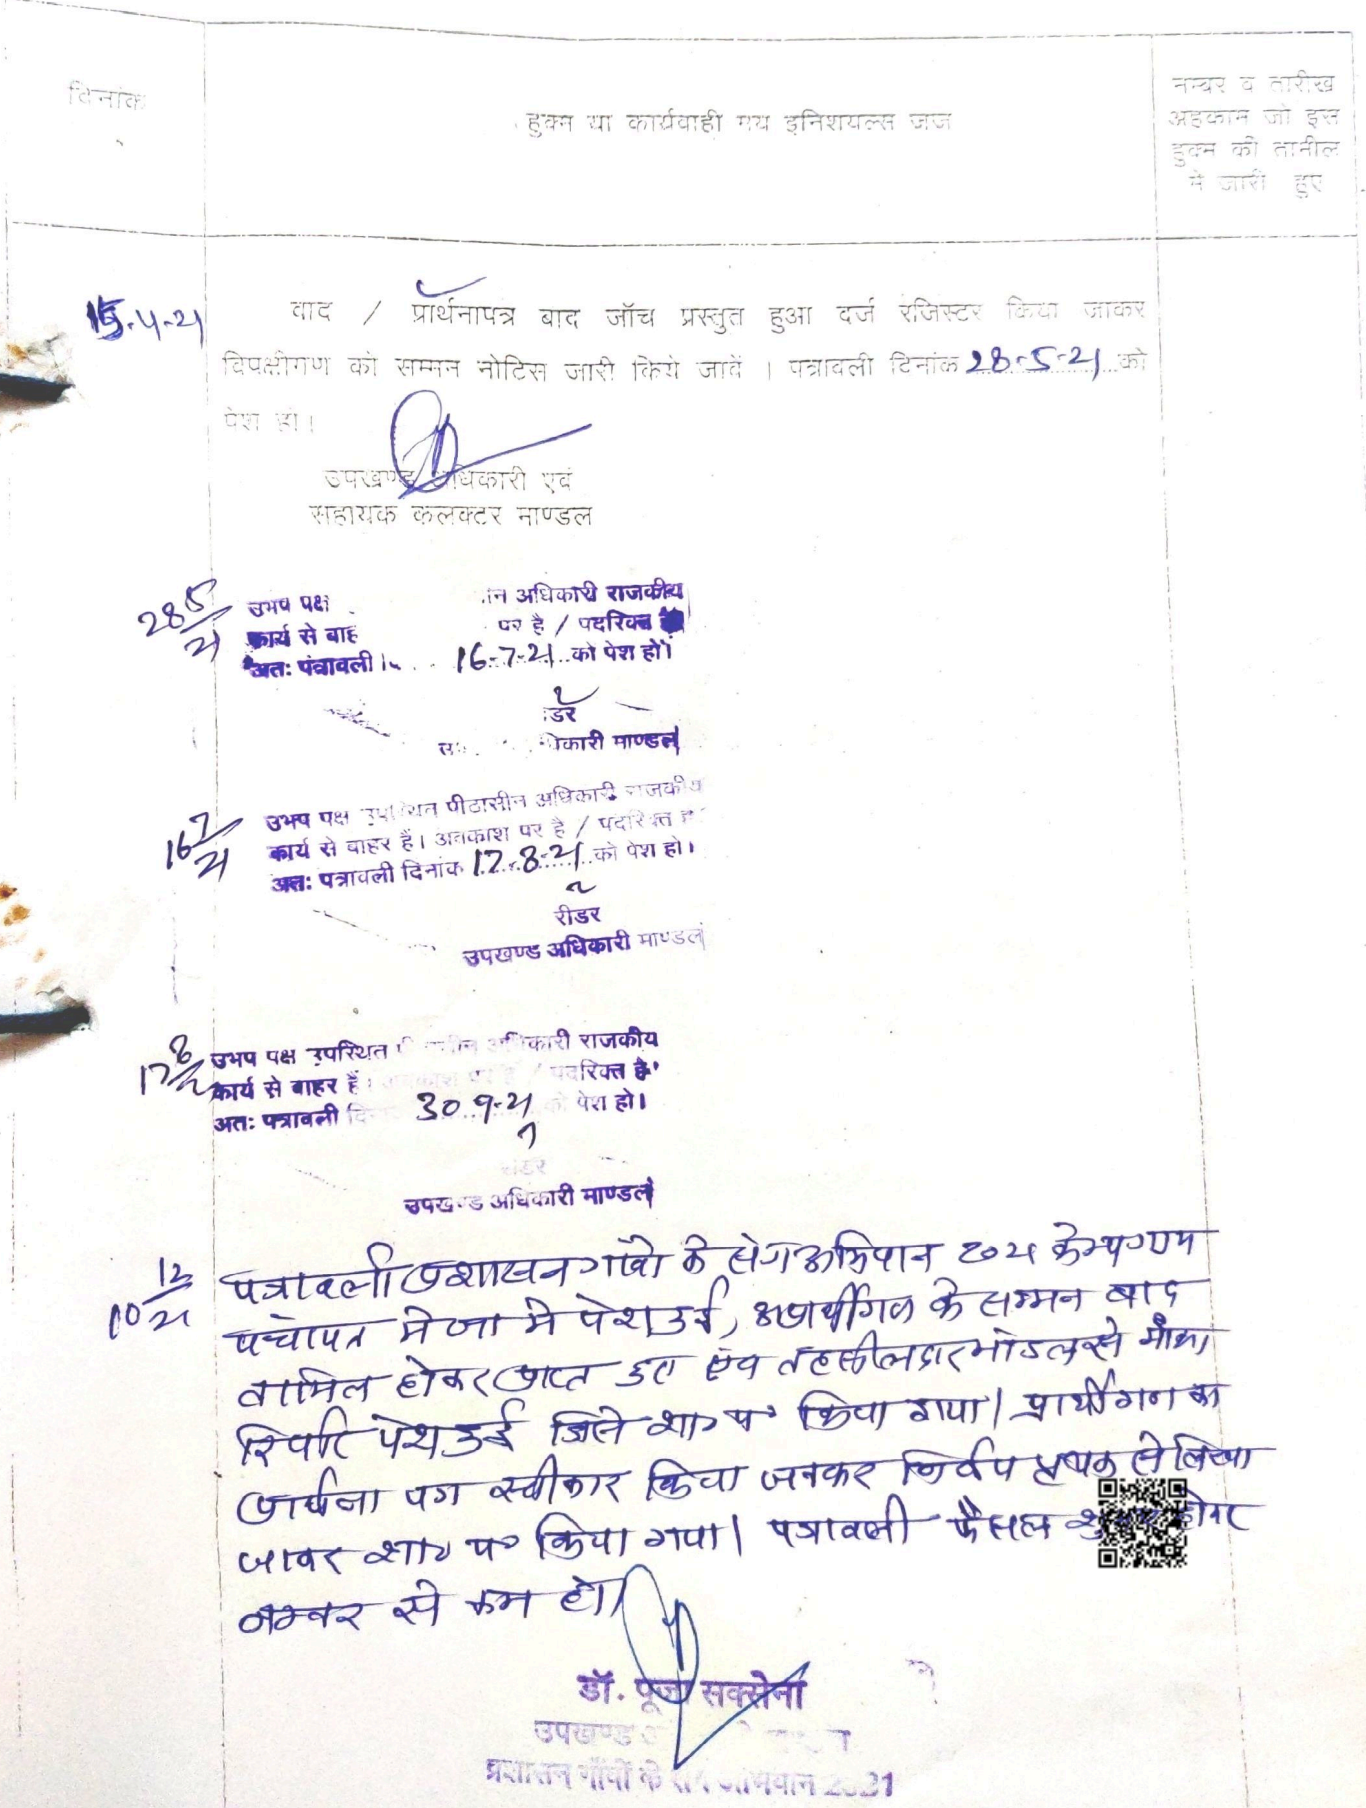 दिनांक
हुक्म या कार्यवाही मय इनिशयल्स जज
नम्बर व तारीख
अहकाम जो इस
हुक्म की तामील
मे जारी हुए
15-4-21
वाद / प्रार्थनापत्र बाद जॉच प्रस्तुत हुआ दर्ज रजिस्टर किया जाकर
विपक्षीगण को सम्मन नोटिस जारी किये जावें । पत्रावली दिनांक 28-5-21 को
पेश हो।
उपखण्ड अधिकारी एवं
सहायक कलक्टर माण्डल
28/5/21
उभय पक्ष अधिकारी राजकीय
कार्य से बाह पर है / पदरिक्त है
अतः पत्रावली 16-7-21 को पेश हो।
डर
कारी माण्डल
16/7/21
उभय पक्ष उपस्थित पीठासीन अधिकारी राजकीय
कार्य से बाहर हैं। अवकाश पर है / पदरिक्त है
अतः पत्रावली दिनांक 17-8-21 को पेश हो।
रीडर
उपखण्ड अधिकारी माण्डल
17/8/21
उभय पक्ष उपस्थित अधिकारी राजकीय
कार्य से बाहर हैं। अवकाश पर है / पदरिक्त है
अतः पत्रावली 30-9-21 को पेश हो।
रीडर
उपखण्ड अधिकारी माण्डल
10/12/21
पत्रावली प्रशासन गांवो के संग अभियान 2021 केम्प ग्राम
पंचायत मेजा मे पेश हुई, अप्रार्थीगण के सम्मन बाद
तामिल होकर प्राप्त हुए एंव तहसीलदार मांडल से मौका
रिपोर्ट पेश हुई जिसे शा० प० किया गया। प्रार्थीगण का
प्रार्थना पत्र स्वीकार किया जाकर निर्णय पृथक से लिखा
जाकर शा० प० किया गया। पत्रावली फैसल होकर
नम्बर से कम हो।
डॉ. पूजा सक्सेना
उपखण्ड
प्रशासन गाँवों के संग अभियान 2021